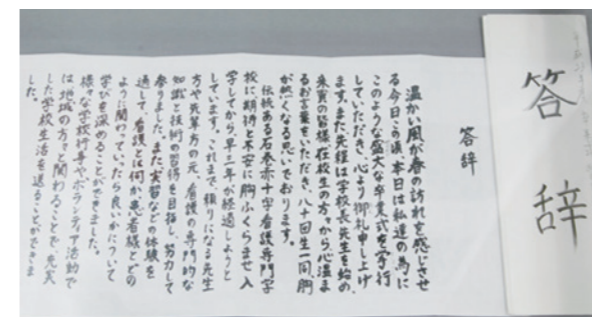 答辞
答辞
温かい風が春の訪れを感じさせ
る今日この頃、本日は私達の為に
このような盛大な卒業式を挙行
していただき、心より御礼申し上げ
ます。また先程は学校長先生を始め、
来賓の皆様、在校生の方々から心温ま
るお言葉をいただき、八十回生一同、胸
が熱くなる思いでおります。
伝統ある石巻赤十字看護専門学
校に期待と不安に胸ふくらませ入
学してから、早三年が経過しようと
しています。これまで、頼りになる先生
方や先輩方の元、看護の専門的な
知識と技術の習得を目指し、努力して
参りました。また、実習などの体験を
通して、看護とは何か、患者様とどの
ように関わっていったら良いかについて
学びを深めることができました。
様々な学校行事やボランティア活動で
は地域の方々と関わることで、充実
した学校生活を送ることができま
した。